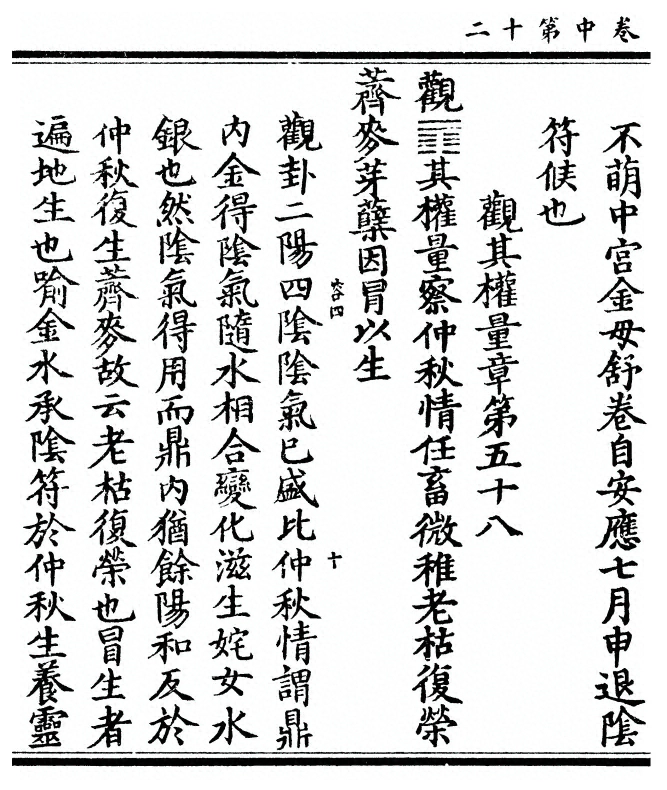 卷中第十二
不萌中宮金母舒卷自安應七月申退陰
符候也
觀其權量章第五十八
觀䷓其權量察仲秋情任畜微稚老枯復榮
薺麥芽蘖因冒以生
容四
十
觀卦二陽四陰陰氣已盛比仲秋情謂鼎
內金得陰氣隨水相合變化滋生姹女水
銀也然陰氣得用而鼎內猶餘陽和反於
仲秋復生薺麥故云老枯復榮也冒生者
遍地生也喻金水承陰符於仲秋生養靈